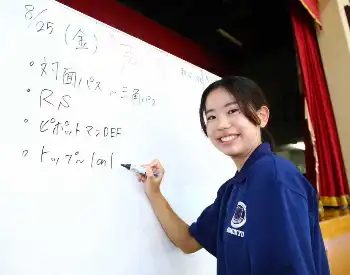 8/25 (金)
・対面パス→三角パス
・R,S
・ピポットマンDEF
・トップ〜1on1